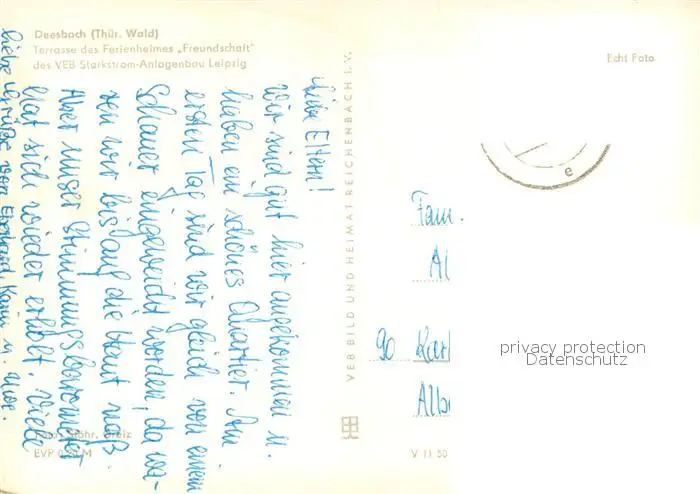 Deesbach (Thür. Wald)
Terrasse des Ferienheimes „Freundschaft"
des VEB Starkstrom-Anlagenbau Leipzig
Echt Foto
Liebe Eltern!
Wir sind gut hier angekommen u.
haben ein schönes Quartier. Am
ersten Tag sind wir gleich von einem
Schauer eingeweicht worden, da wa-
ren wir bis auf die Haut naß.
Aber unser Stimmungsbarometer
hat sich wieder erholt. Viele
liebe Grüße von Eberhard, Karin u. Uwe.
VEB BILD UND HEIMAT REICHENBACH I. V.
Fam.
Al
90 Karl
Albe
e
privacy protection
Datenschutz
Greiz
EVP M
V 11 50